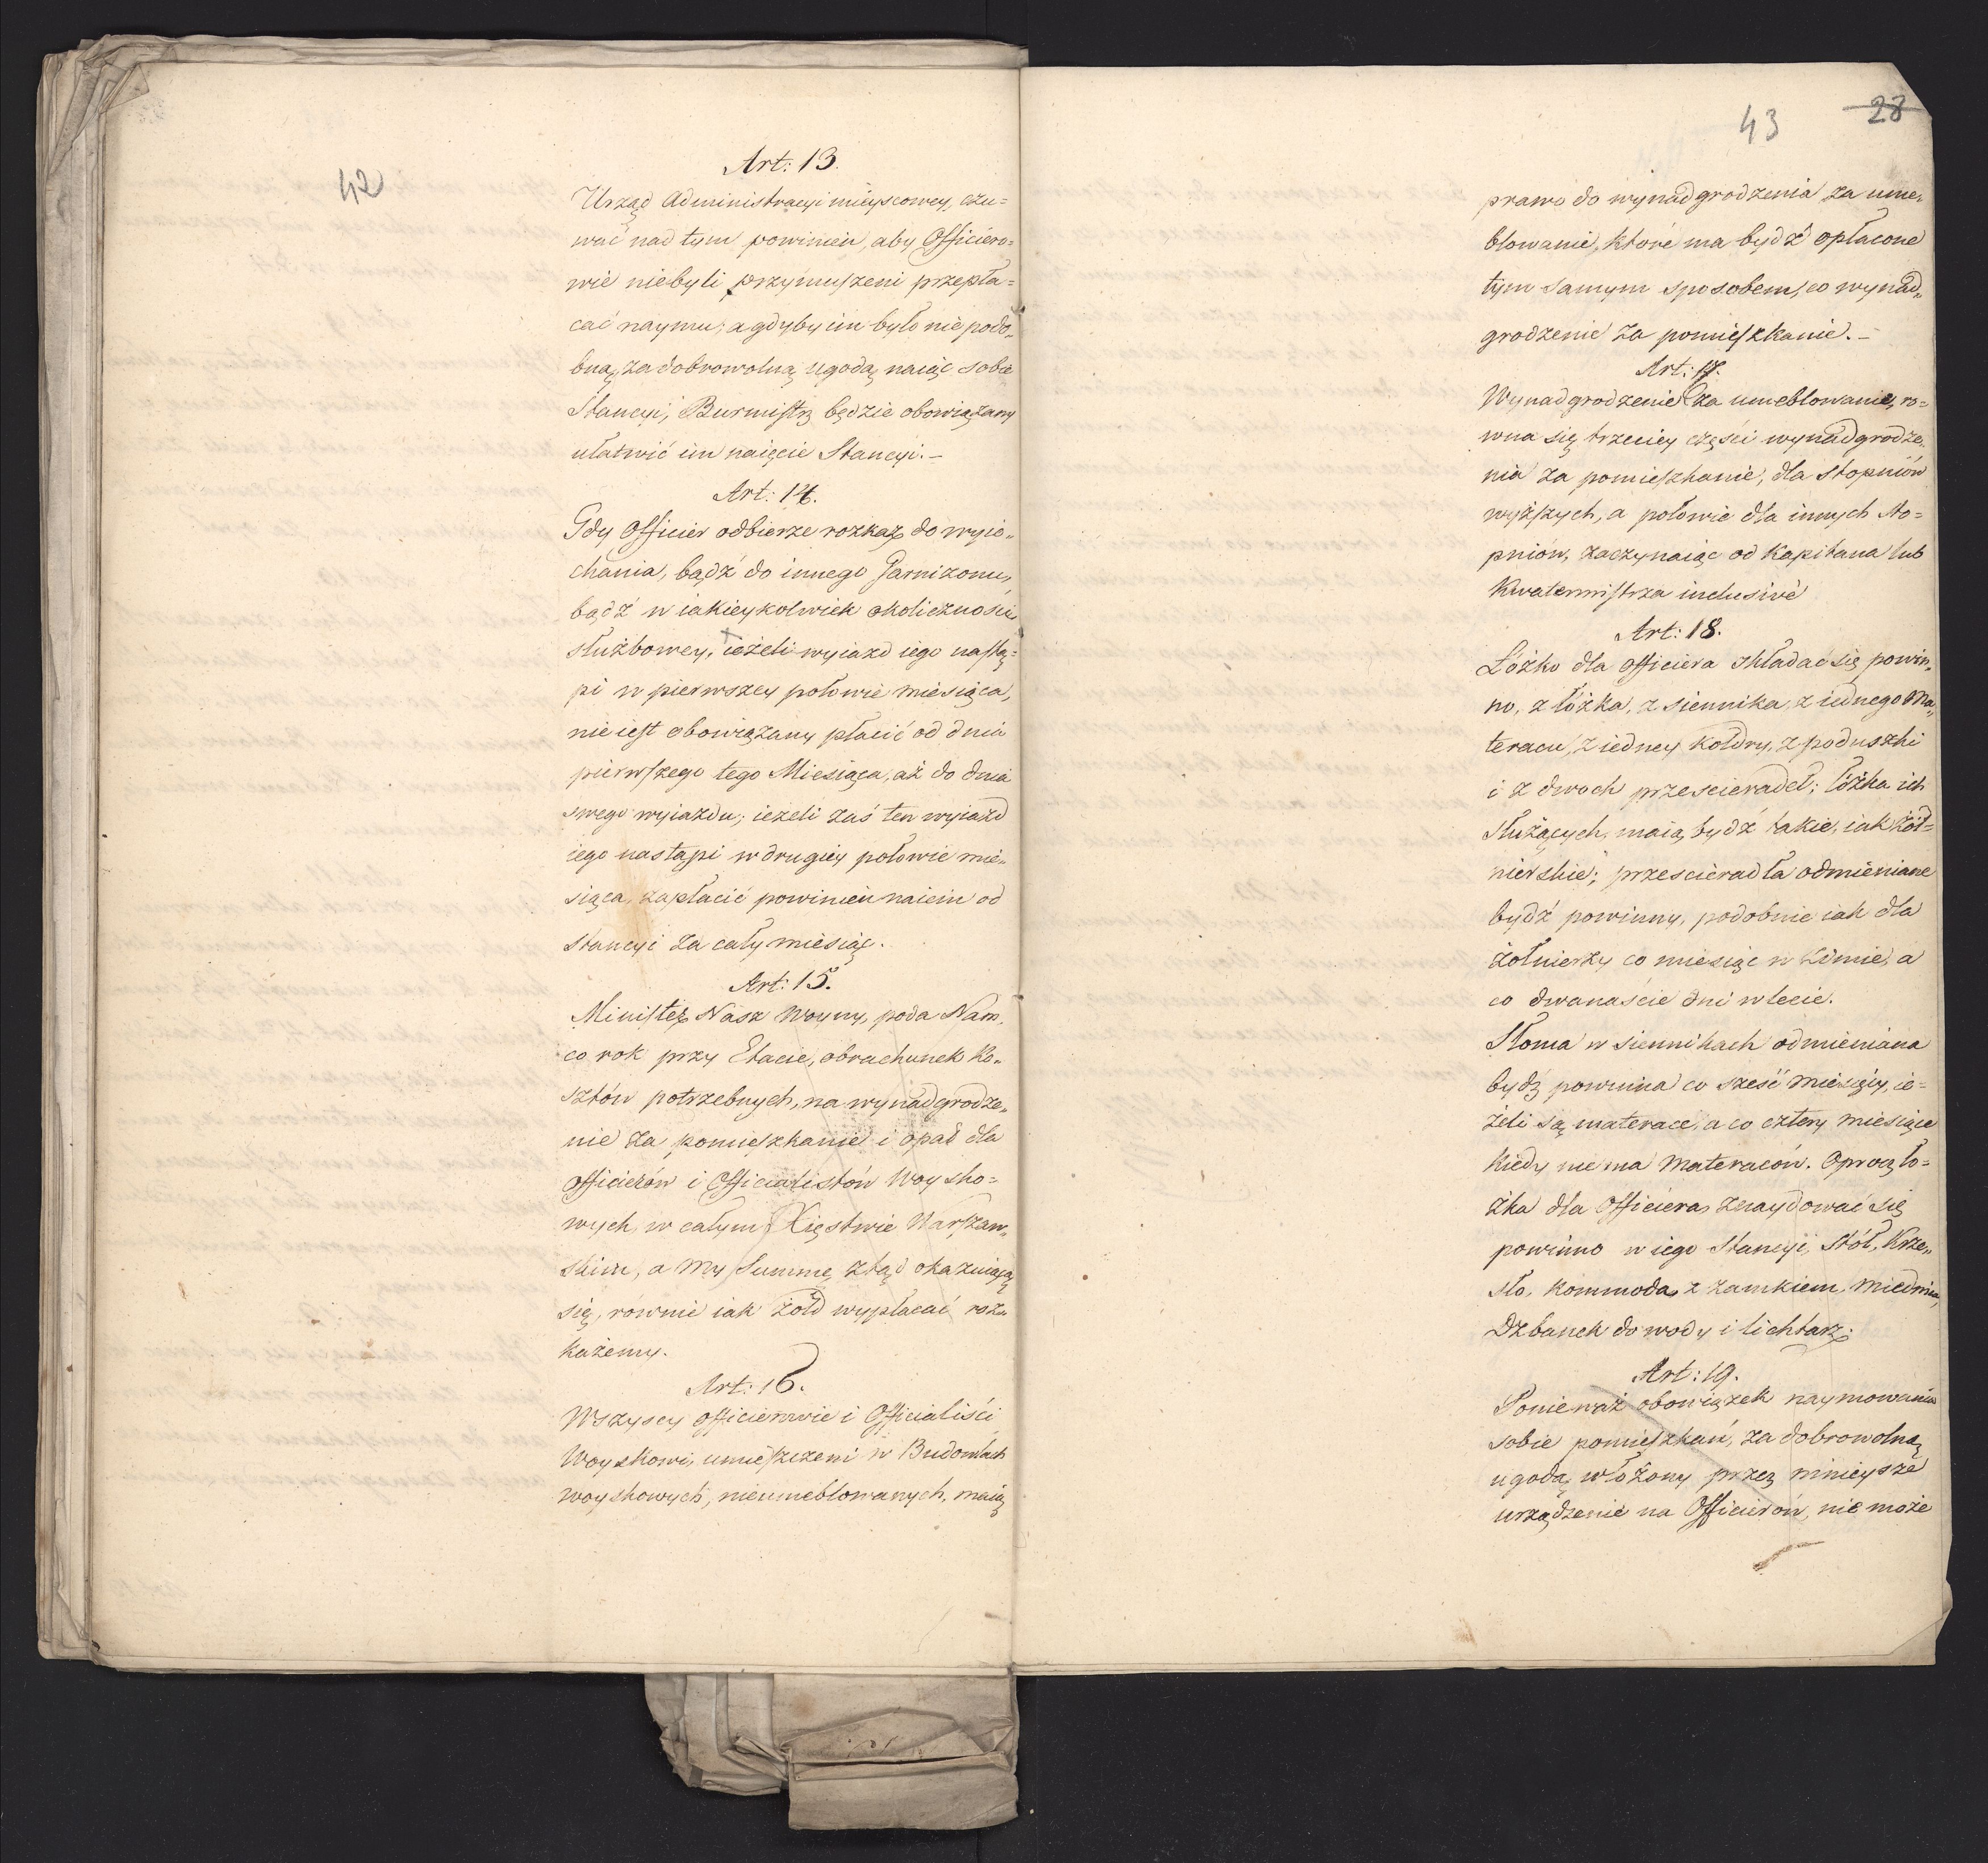 42
Art: 13.
Urząd Administracyi mieyscowey, czu=
wać nad tym powinien, aby Officiero=
wie niebyli przymuszeni przepła=
cać naymu; a gdyby im było niepodo„
bną, za dobrowolną ugodą naiąć sobie
Stancyi, Burmistrz będzie obowiązany
ułatwić im naięcie Stancyi. –
Art: 14.
Gdy Officier odbierze rozkaz do wyie„
chania, bądź do innego Garnizonu,
bądź w iakieykolwiek okoliczności
służbowey, ieżeli wyiazd iego nastą=
pi w pierwszey połowie miesiąca,
nie iest obowiązany płacić od dnia
pierwszego tego Miesiąca, aż do dnia
swego wyiazdu; ieżeli zaś ten wyiazd
iego nastąpi w drugiey połowie mie„
siąca, zapłacić powinien naiem od
stancyi za cały miesiąc.
Art: 15.
Minister Nasz Woyny, poda Nam,
co rok przy Etacie, obrachunek ko„
sztów potrzebnych, na wynadgrodze„
nie za pomieszkanie i opał dla
Officierów i Officialistów Woysko=
wych, w całym Xięstwie Warszaw„
skim, a My Summę ztąd okazuiącą
się, równie iak żołd wypłacać roz„
każemy.
Art: 16.
Wszyscy Officierowie i Officialiści
Woyskowi, umieszczeni w Budowlach
woyskowych, nieumeblowanych, maią
43
28
prawo do wynadgrodzenia za ume„
blowanie, które ma bydź opłacone
tym samym sposobem, co wynad„
grodzenie za pomieszkanie. –
Art: 17.
Wynadgrodzenie za umeblowanie, ro=
wna się trzeciey części wynadgrodze„
nia za pomieszkanie, dla stopniów
wyższych, a połowie dla innych sto=
pniów, zaczynaiąc od Kapitana lub
Kwatermistrza inclusive
Art: 18.
Łóżko dla Officiera składać się powin„
no, z łóżka, z siennika, z iednego Ma„
teracu, z iedney kołdry, z poduszki
i z dwoch przescieradeł; łóżka ich
służących, maią bydź takie, iak żoł=
nierskie; przescieradła odmieniane
bydź powinny, podobnie iak dla
żołnierzy co miesiąc w zimie, a
co dwanaście dni w lecie.
Słoma w siennikach odmieniana
bydź powinna co sześć miesięcy, ie=
żeli są materace, a co cztery miesiące
kiedy nie ma Materaców. Oprocz ło=
żka dla Officiera, znaydować się
powinno w iego Stancyi, Stół, Krze„
sło, Kommoda z zamkiem, Miednica,
Dzbanek do wody i lichtarz.
Art: 19.
Ponieważ obowiązek naymowania
sobie pomieszkań, za dobrowolną
ugodą włożony przez ninieysze
urządzenie na Officierów, nie może